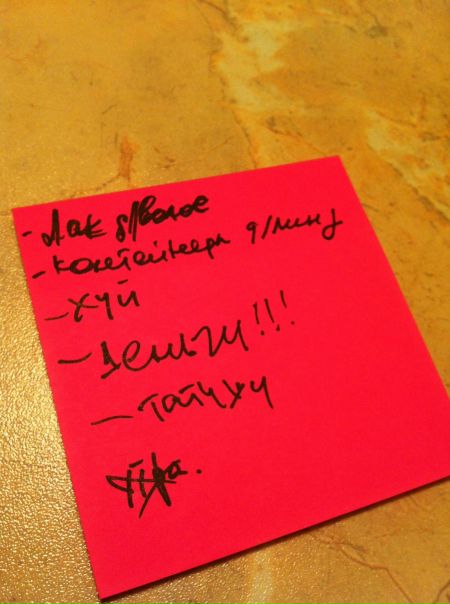 - Лак д/волос
- контейнеры д/линз
- хуй
- деньги!!!
- татуху